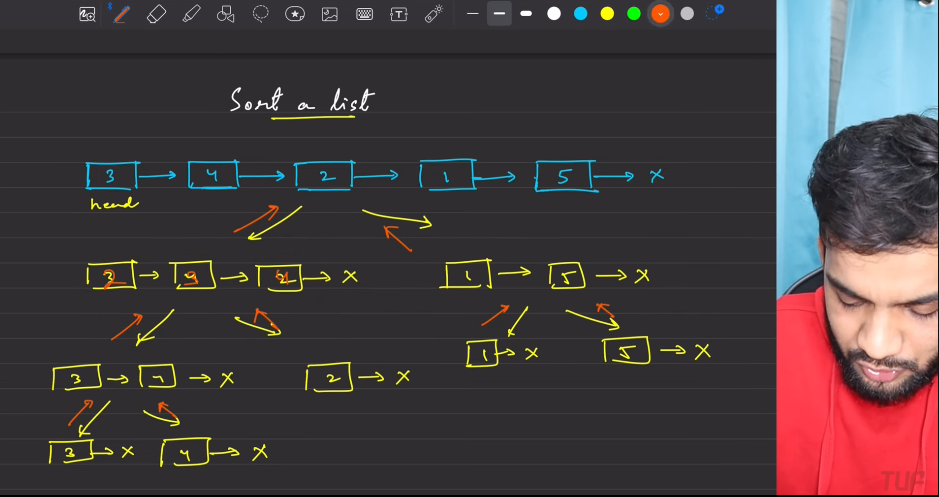 Sort a list
3 4 2 1 5 x
head
2 3 4 x 1 5 x
1 x 5 x
3 4 x 2 x
3 x 4 x
TUF